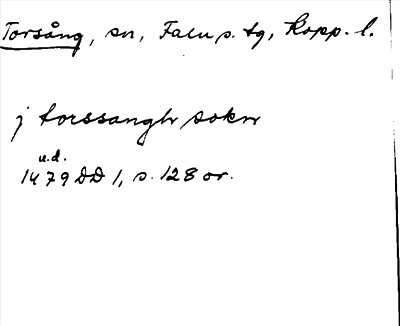 Torsång, sn, Falu s. tg, Kopp. l.
j torssangh sokn
u.d.
1479 DD 1, s. 128 or.